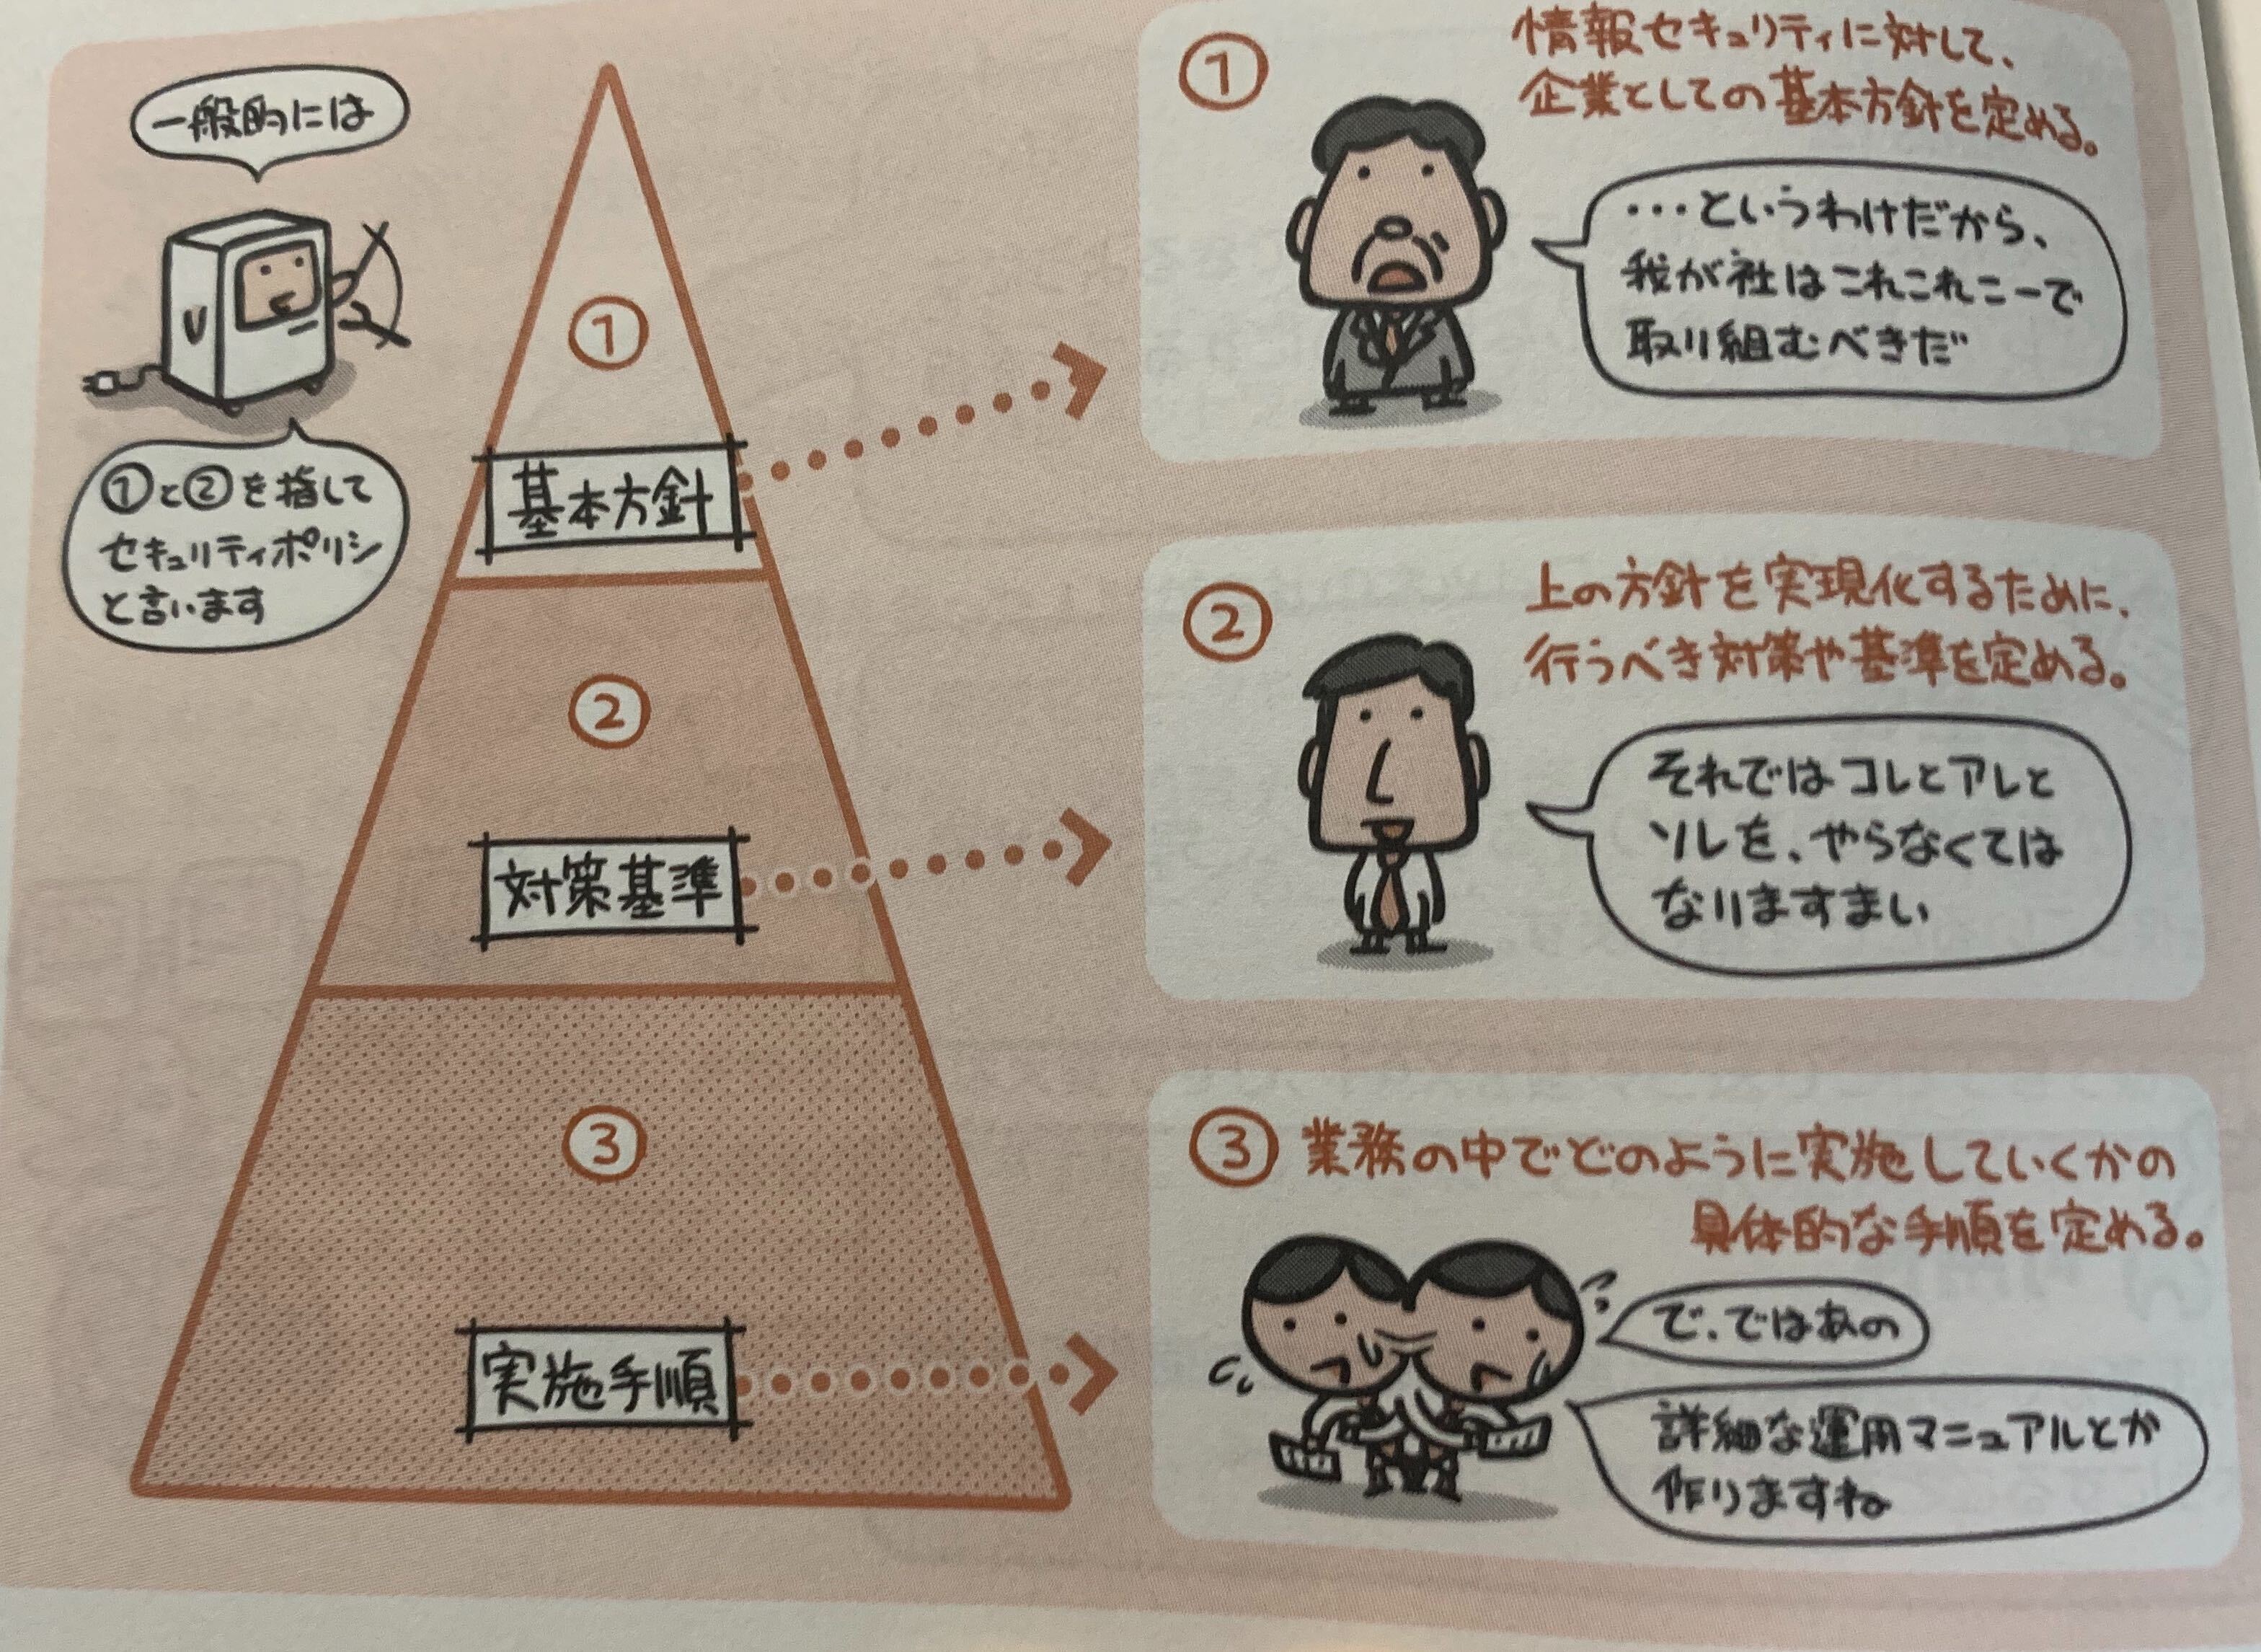 一般的には
①と②を指して
セキュリティポリシ
と言います
①
基本方針
②
対策基準
③
実施手順
①
情報セキュリティに対して、
企業としての基本方針を定める。
・・・というわけだから、
我が社はこれこれこーで
取り組むべきだ
②
上の方針を実現化するために、
行うべき対策や基準を定める。
それではコレとアレと
ソレを、やらなくては
なりますまい
③ 業務の中でどのように実施していくかの
具体的な手順を定める。
で、ではあの
詳細な運用マニュアルとか
作りますね